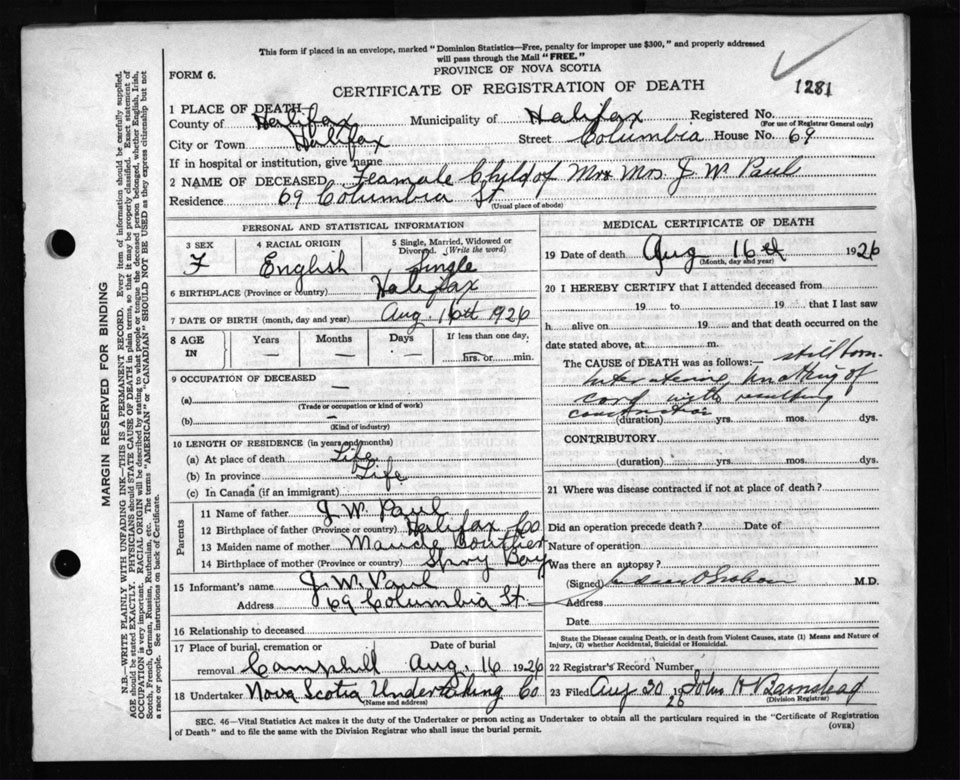 This form if placed in an envelope, marked "Dominion Statistics—Free, penalty for improper use $300," and properly addressed
will pass through the Mail "FREE."
FORM 6.
PROVINCE OF NOVA SCOTIA
CERTIFICATE OF REGISTRATION OF DEATH
1281
1 PLACE OF DEATH
County of Halifax Municipality of Halifax Registered No.
(For use of Registrar General only)
City or Town Halifax Street Columbia House No. 69
If in hospital or institution, give name
2 NAME OF DECEASED Feamale Child of Mr & Mrs. J. W. Paul
Residence 69 Columbia St
(Usual place of abode)
PERSONAL AND STATISTICAL INFORMATION
3 SEX F
4 RACIAL ORIGIN English
5 Single, Married, Widowed or Divorced. (Write the word) Single
6 BIRTHPLACE (Province or country) Halifax
7 DATE OF BIRTH (month, day and year) Aug. 16th 1926
8 AGE IN Years — Months — Days — If less than one day, hrs. or min.
9 OCCUPATION OF DECEASED —
(a)
(Trade or occupation or kind of work)
(b) —
(Kind of industry)
10 LENGTH OF RESIDENCE (in years and months)
(a) At place of death Life
(b) In province Life
(c) In Canada (if an immigrant)
Parents
11 Name of father J. W. Paul
12 Birthplace of father (Province or country) Halifax Co
13 Maiden name of mother Maude Boutlier
14 Birthplace of mother (Province or country) Spry Bay
15 Informant's name J. W. Paul
Address 69 Columbia St.
16 Relationship to deceased
17 Place of burial, cremation or removal Camphill Date of burial Aug. 16 1926
18 Undertaker Nova Scotia Undertaking Co
(Name and address)
MEDICAL CERTIFICATE OF DEATH
19 Date of death Aug 16th 1926
(Month, day and year)
20 I HEREBY CERTIFY that I attended deceased from
19 to 19 that I last saw
h alive on 19 and that death occurred on the
date stated above, at m.
The CAUSE of DEATH was as follows:— stillborn
knotting of
cord with resulting
(duration) yrs. mos. dys.
CONTRIBUTORY
(duration) yrs. mos. dys.
21 Where was disease contracted if not at place of death?
Did an operation precede death? Date of
Nature of operation
Was there an autopsy?
(Signed) M.D.
Address
Date
State the Disease causing Death, or in death from Violent Causes, state (1) Means and Nature of
Injury, (2) whether Accidental, Suicidal or Homicidal.
22 Registrar's Record Number
23 Filed Aug 20 1926 John H Barnstead
(Division Registrar)
SEC. 46—Vital Statistics Act makes it the duty of the Undertaker or person acting as Undertaker to obtain all the particulars required in the "Certificate of Registration
of Death" and to file the same with the Division Registrar who shall issue the burial permit.
(OVER)
MARGIN RESERVED FOR BINDING
N.B.—WRITE PLAINLY WITH UNFADING INK—THIS IS A PERMANENT RECORD. Every item of information should be carefully supplied.
AGE should be stated EXACTLY. PHYSICIANS should STATE CAUSE OF DEATH in plain terms, so that it may be properly classified. Exact statement of
OCCUPATION is very important. RACIAL ORIGIN will be described by stating to what people or tongue the deceased person belonged, whether English, Irish,
Scotch, French, German, Russian, Ruthenian, etc. The terms "AMERICAN" or "CANADIAN" SHOULD NOT BE USED as they express citizenship but not
a race or people. See instructions on back of Certificate.